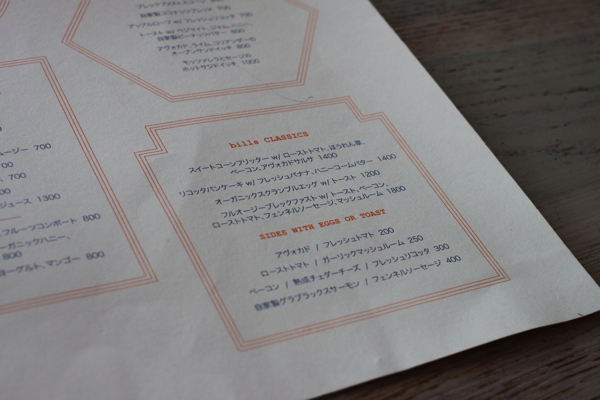 自家製ココナッツブレッド 700
アップルローフ w/ フレッシュリコッタ 700
トースト w/ ベジマイト、ジャム、ハニー、
自家製ピーナッツバター 600
アヴォカド、ライム、コリアンダーの
オープンサンドイッチ 800
モッツァレラとセージの
ホットサンドイッチ 1000
bills CLASSICS
スイートコーンフリッター w/ ローストトマト、ほうれん草、
ベーコン、アヴォカドサルサ 1400
リコッタパンケーキ w/ フレッシュバナナ、ハニーコームバター 1400
オーガニックスクランブルエッグ w/ トースト 1200
フルオージーブレックファスト w/ トースト、ベーコン、
ローストトマト、フェンネルソーセージ、マッシュルーム 1800
SIDES WITH EGGS OR TOAST
アヴォカド / フレッシュトマト 200
ローストトマト / ガーリックマッシュルーム 250
ベーコン / 熟成チェダーチーズ / フレッシュリコッタ 300
自家製グラブラックスサーモン / フェンネルソーセージ 400
ムージー 700
700
700
ュ 700
ジュース 1300
フルーツコンポート 800
ーガニックハニー、
800
ヨーグルト、マンゴー 800